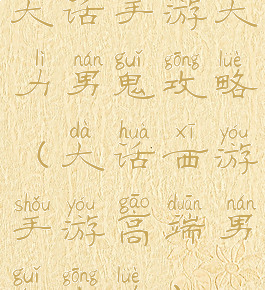 大话手游大
lì nán guǐ gōng lüè
力男鬼攻略
dà huà xī yóu
（大话西游
shǒu yóu gāo duān nán
手游高端男
guǐ gōng lüè